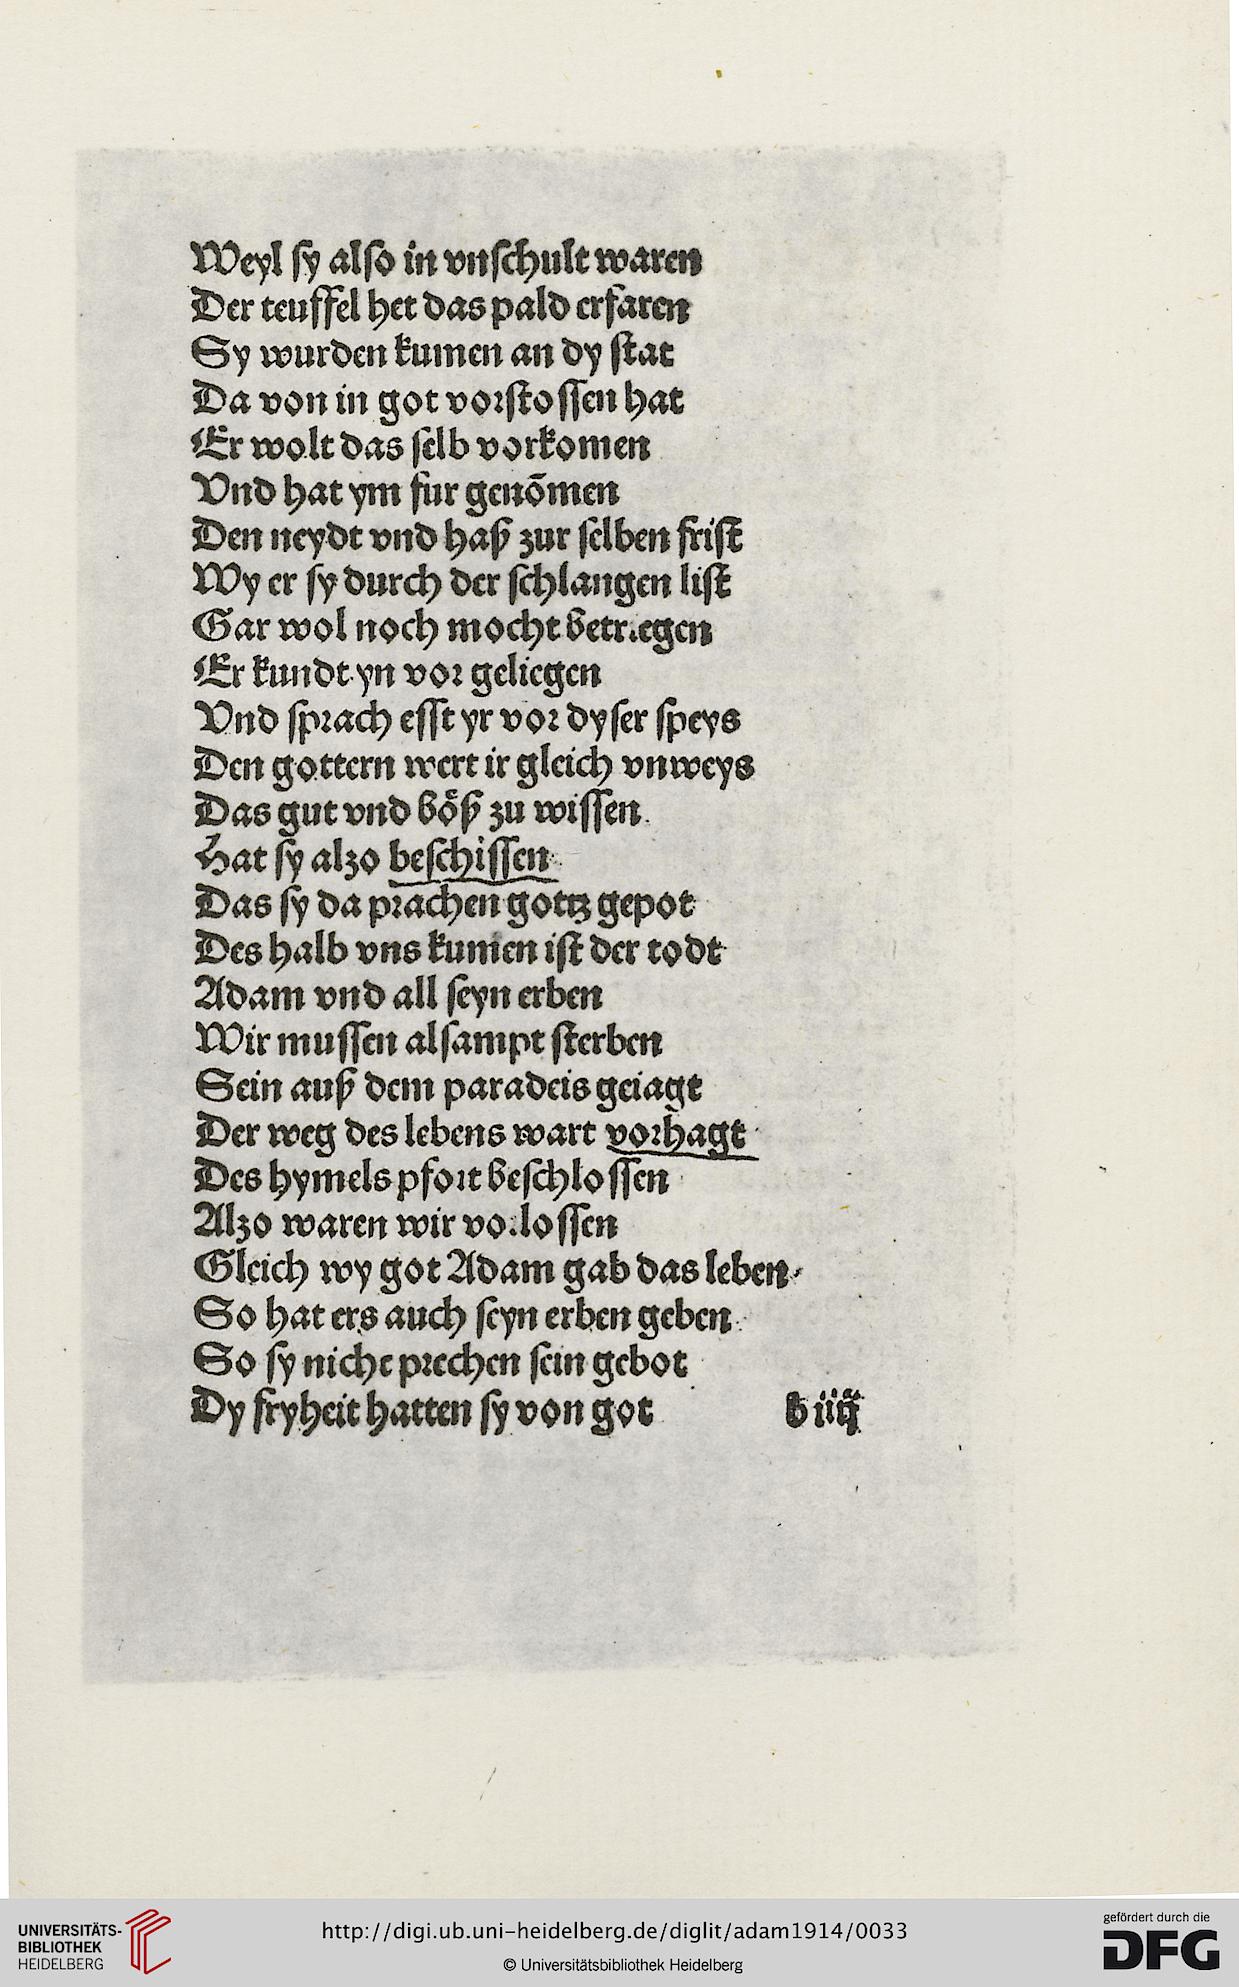 Weyl sy also in vnschult waren
Der teuffel het das pald erfaren
Sy wurden kumen an dy stat
Da von in got vorstossen hat
Er wolt das selb vorkomen
Vnd hat ym fur genōmen
Den neydt vnd haß zur selben frist
Wy er sy durch der schlangen list
Gar wol noch mocht betriegen
Er kundt yn vor geliegen
Vnd sprach esst yr vor dyser speys
Den gottern wert ir gleich vnweys
Das gut vnd böß zu wissen
Hat sy alzo beschissen
Das sy da prachen gottz gepot
Des halb vns kumen ist der todt
Adam vnd all seyn erben
Wir mussen alsampt sterben
Sein auß dem paradeis geiagt
Der weg des lebens wart vorhagt
Des hymels pfort beschlossen
Alzo waren wir vorlossen
Gleich wy got Adam gab das leben
So hat ers auch seyn erben geben
So sy nicht prechen sein gebot
Dy fryheit hatten sy von got b iiij
UNIVERSITÄTS-
BIBLIOTHEK
HEIDELBERG
http://digi.ub.uni-heidelberg.de/diglit/adam1914/0033
© Universitätsbibliothek Heidelberg
gefördert durch die
DFG